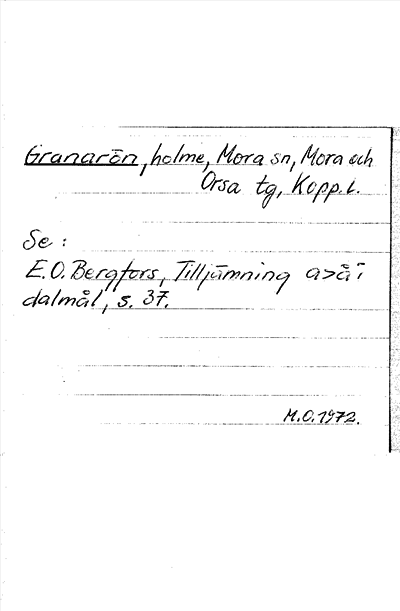 Granarön, holme, Mora sn, Mora och
Orsa tg, Kopp. l.
Se :
E. O. Bergfors, Tilljämning a>å i
dalmål, s. 37.
M.O. 1972.